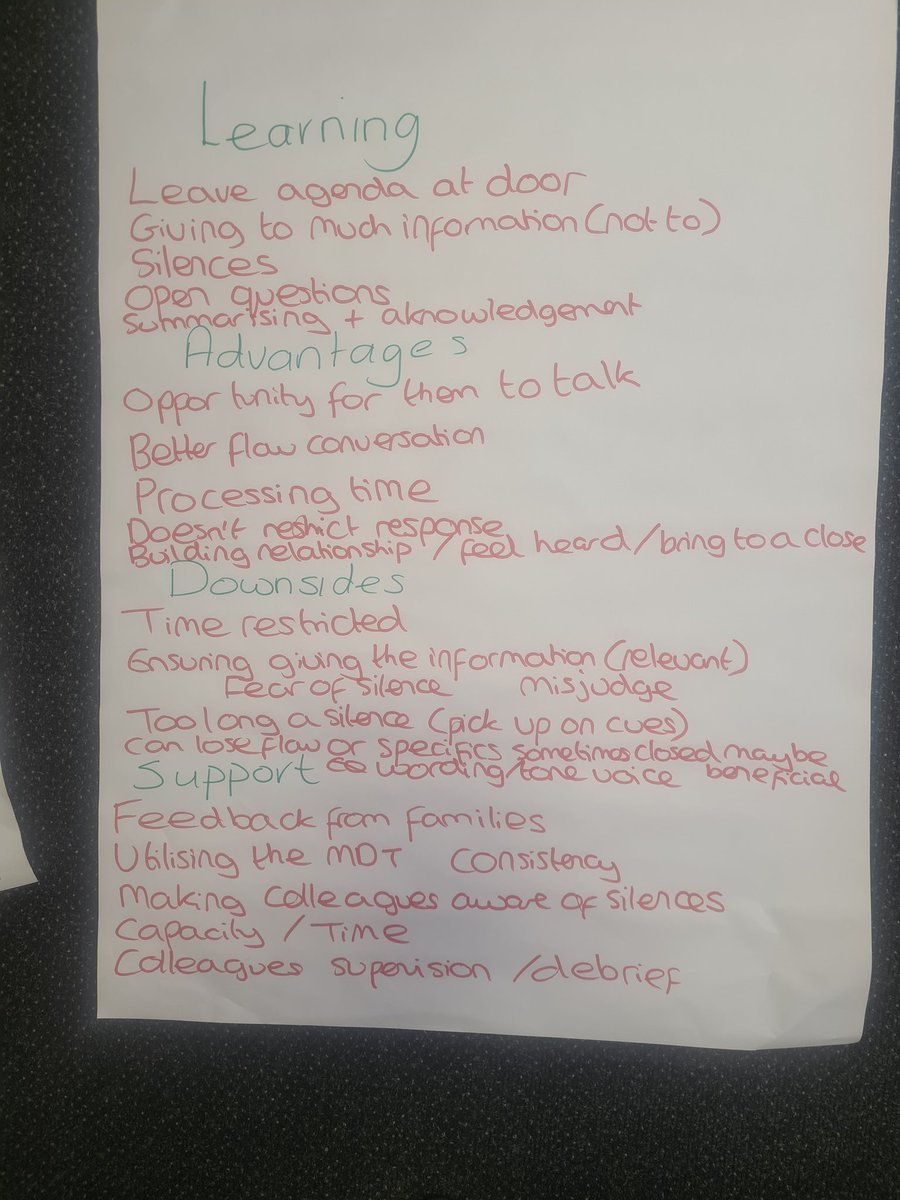 Learning
Leave agenda at door
Giving to much information (not to)
Silences
Open questions
Summarising + aknowledgement
Advantages
Opportunity for them to talk
Better flow conversation
Processing time
Doesn't restrict response
Building relationship / feel heard / bring to a close
Downsides
Time restricted
Ensuring giving the information (relevant)
Fear of silence misjudge
Too long a silence (pick up on cues)
Can lose flow or specifics sometimes closed maybe
Support wording/tone voice beneficial
Feedback from families
Utilising the MDT Consistency
Making Colleagues aware of silences
Capacity / Time
Colleagues supervision / debrief